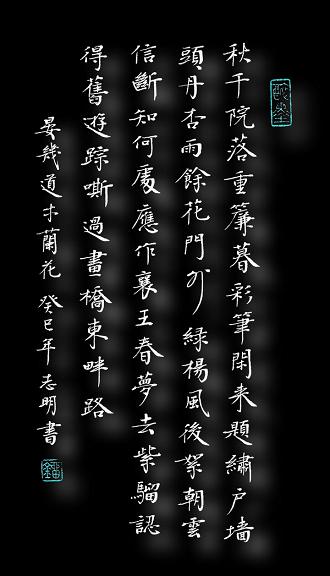 秋千院落重簾暮彩筆閑来題繡户墙
頭丹杏雨餘花門外綠楊風後絮朝雲
信斷知何處應作襄王春夢去紫騮認
得舊遊踪嘶過畫橋東畔路
晏幾道木蘭花 癸巳年志明書